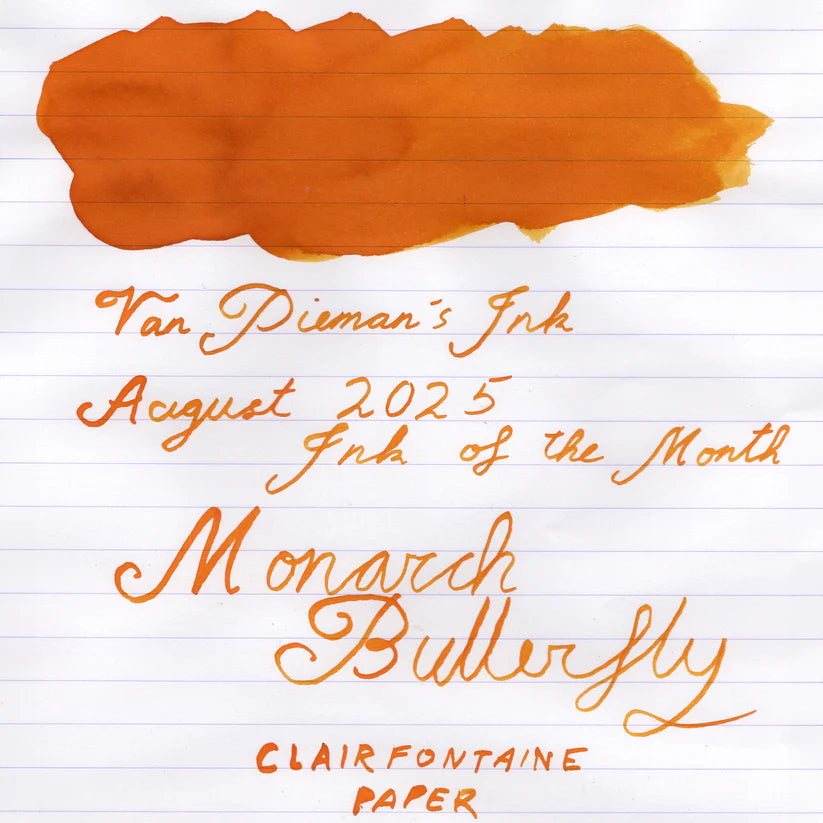 Van Dieman's Ink
August 2025
Ink of the Month
Monarch
Butterfly
CLAIRFONTAINE
PAPER